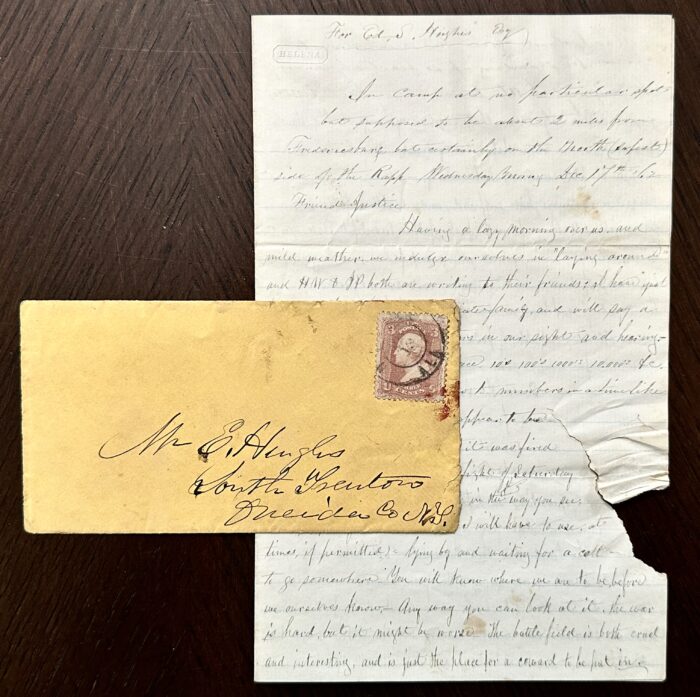 For Ed. S. Hughes Esq
HELENA
In camp at no particular spot
but supposed to be about 2 miles from
Fredericksburg but certainly on the North (safest)
side of the Rapp. Wednesday morning Dec. 17th 62
Friend Justice
Having a lazy morning over us, and
mild weather, we indulge ourselves in "laying around"
and H.W. & J.P. both are writing to their friends; I have just
family, and will say a
in our sight and hearing
10s 100s 1000s 10,000s &c.
numbers in a time like
appear to be
it was fired
fight of Saturday
in the way you see.
will have to use, at
times, if permitted;= lying by and waiting for a call
to go somewhere. You will know where we are to be, before
we ourselves know,= Any way you can look at it, the war
is hard, but it might be worse. The battle field is both cruel
and interesting, and is just the place for a coward to be put in.
3
CENTS
ALA
Mr E. Hughs
South Trenton
Oneida Co N.Y.